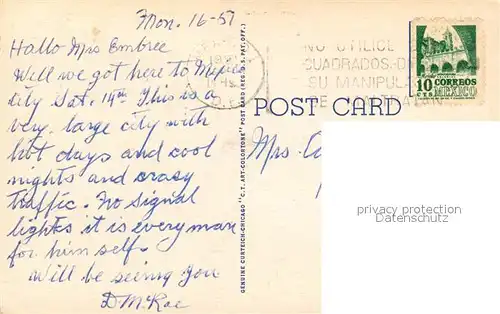 Mon. 16-57
Hallo Mrs Embree
Well we got here to Mexico
city Sat. 14th This is a
very large city with
hot days and cool
nights and crazy
traffic. No signal
lights it is every man
for him self.
Will be seeing you
D. McRae
GENUINE CURTEICH-CHICAGO "C.T. ART-COLORTONE" POST CARD (REG. U.S. PAT. OFF.)
NO UTILICE
CUADRADOS
SU MANIPULA
POST CARD
10 CORREOS
CTS MEXICO
Mrs.
privacy protection
Datenschutz